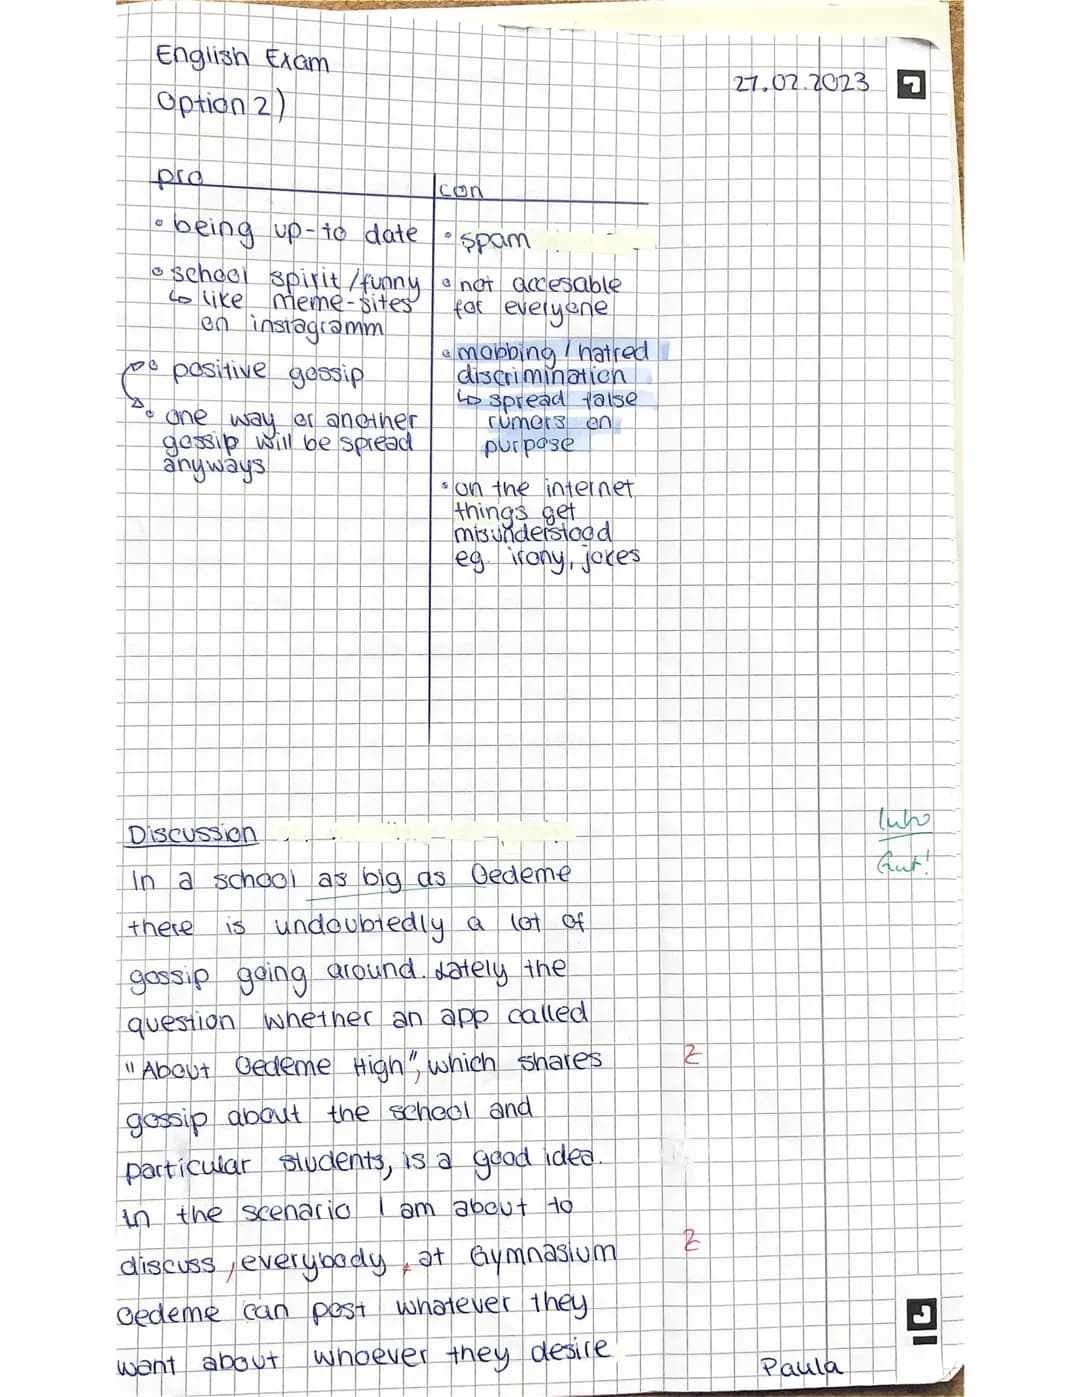 English Exam
27.02.2023
Option 2)
pro
con
• being up-to date
• school spirit / funny
↳ like meme-sites
on instagramm
• positive gossip
• one way or another
gossip will be spread
anyways
• spam
• not accesable
for everyone
• mobbing / hatred
discrimination
↳ spread false
rumors on
purpose
• on the internet
things get
misunderstood
eg. irony, jokes
Discussion
Intro
Gut!
In a school as big as Oedeme
there is undoubtedly a lot of
gossip going around. Lately the
question whether an app called
"About Oedeme High", which shares
Z
gossip about the school and
particular students, is a good idea.
In the scenario I am about to
discuss, everybody at Gymnasium
Z
Oedeme can post whatever they
want about whoever they desire
Paula